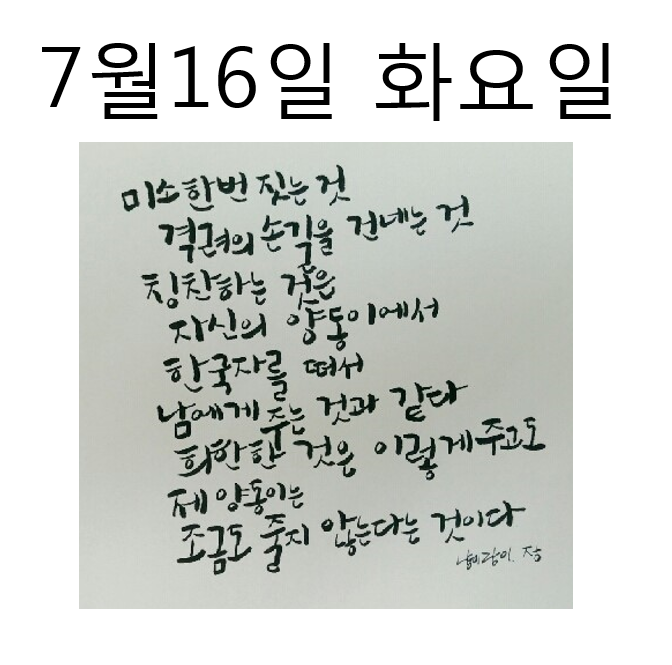 7월16일 화요일
미소한번 짓는 것
격려의 손길을 건네는 것
칭찬하는 것은
자신의 양동이에서
한국자를 떠서
남에게 주는 것과 같다
희한한 것은 이렇게 주고도
제 양동이는
조금도 줄지 않는다는 것이다